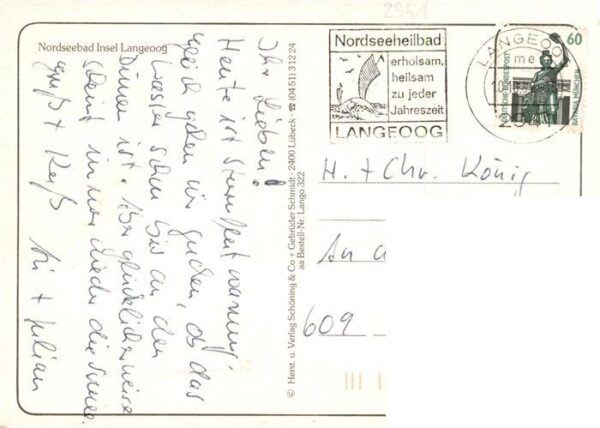 2941
Nordseebad Insel Langeoog
Ihr Lieben!
Heute ist Sturmflutwarnung.
gleich gehen wir gucken, ob das
Wasser schon bis an den
Dünen ist. Aber glücklicherweise
scheint immer wieder die Sonne.
Gruß + Kuß
+ Julian
© Herst. u. Verlag Schöning & Co + Gebrüder Schmidt · 2400 Lübeck · ☎ (0451) 31224
aa Bestell-Nr. Lango 322
Nordseeheilbad
erholsam,
heilsam
zu jeder
Jahreszeit
LANGEOOG
LANGEOO
me
2941
60
DEUTSCHE BUNDESPOST
BAVARIA MÜNCHEN
H. + Chr. König
An
609